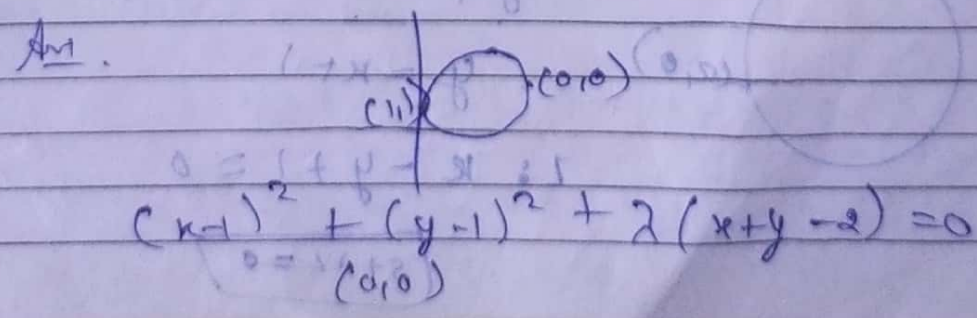 Ans.
(0,0)
(1,1)
(x-1)² + (y-1)² + λ(x+y-2) = 0
(0,0)